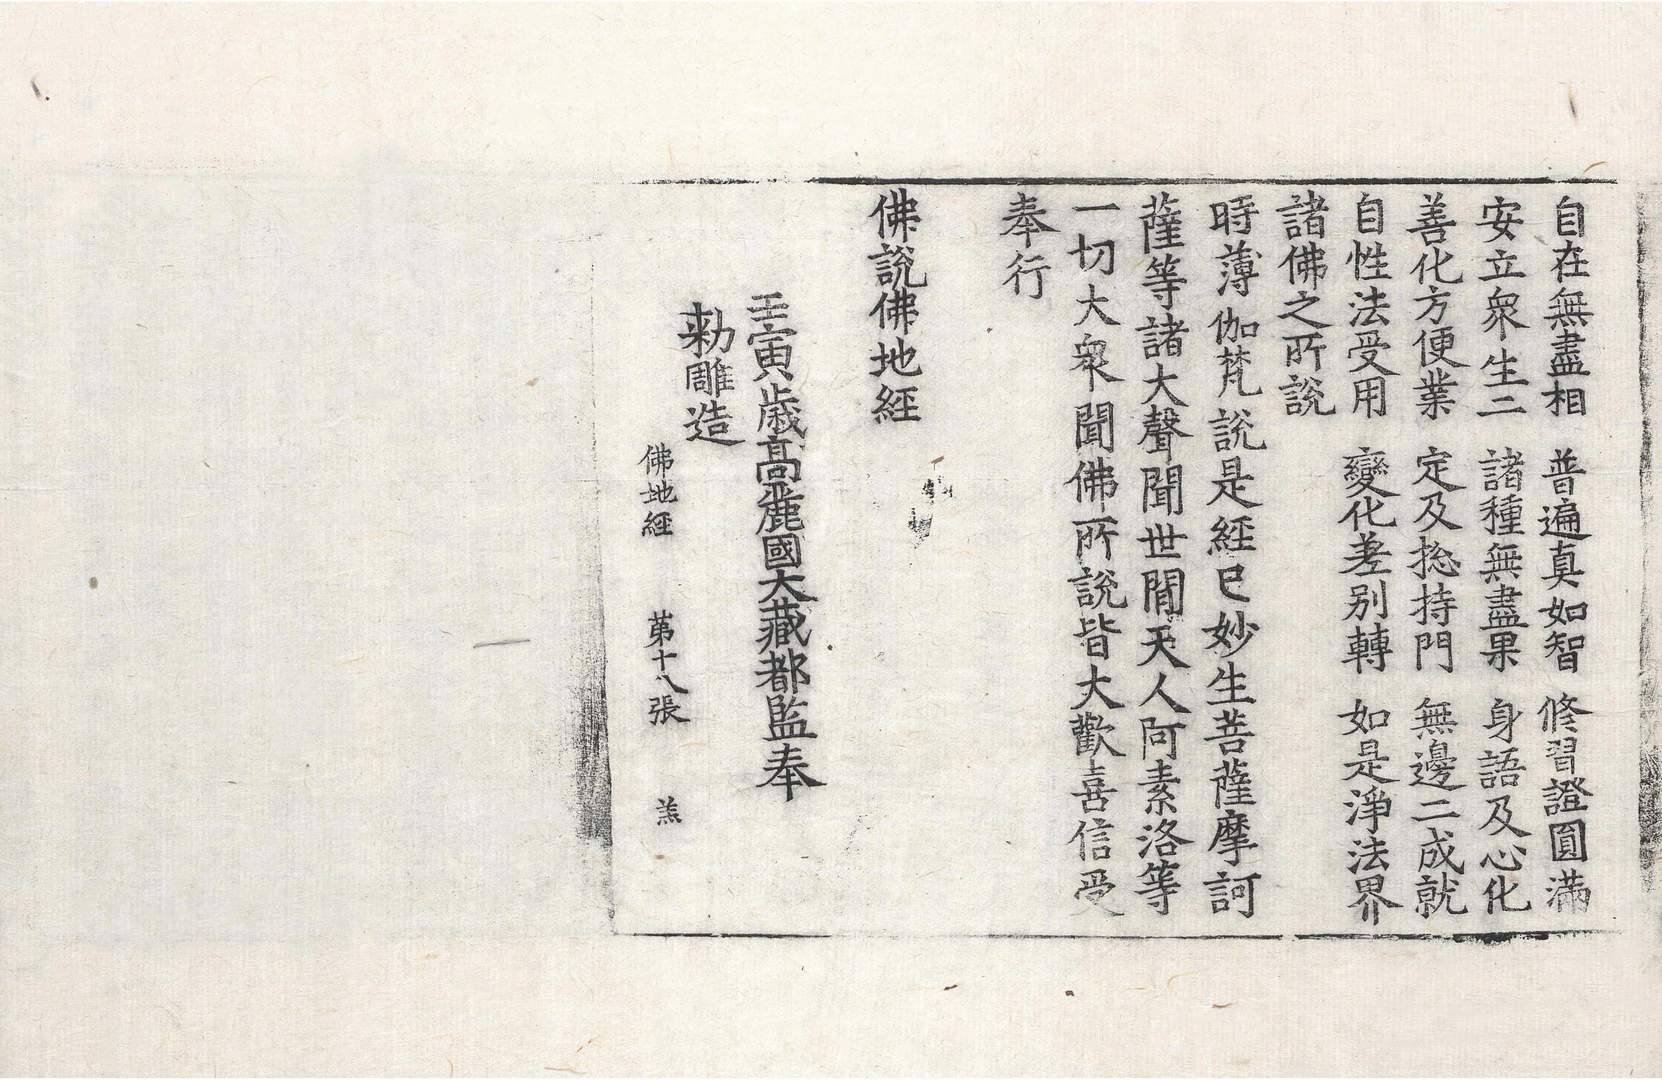 自在無盡相　普遍真如智　修習證圓滿
安立衆生二　諸種無盡果　身語及心化
善化方便業　定及揔持門　無邊二成就
自性法受用　變化差別轉　如是淨法界
諸佛之所說
時薄伽梵說是經已妙生菩薩摩訶
薩等諸大聲聞世間天人阿素洛等
一切大衆聞佛所說皆大歡喜信受
奉行
佛說佛地經
壬寅歲高麗國大藏都監奉
勅雕造
佛地經　第十八張　羔